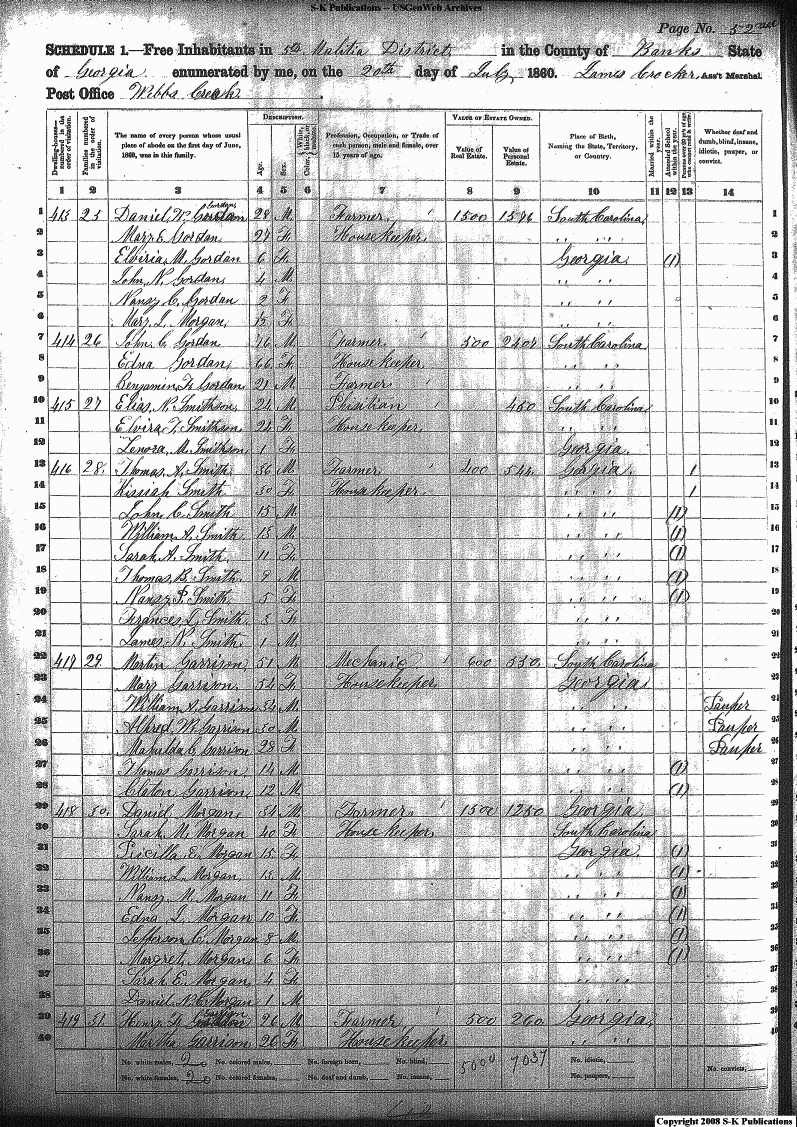 S-K Publications – USGenWeb Archives
Page No. 52
SCHEDULE 1.—Free Inhabitants in 5th Malitia District in the County of Banks State
of Georgia enumerated by me, on the 20th day of July 1860. James Crocker, Ass't Marshal
Post Office Webbs Creek
Dwelling-houses—numbered in the order of visitation.
Families numbered in the order of visitation.
The name of every person whose usual place of abode on the first day of June, 1860, was in this family.
DESCRIPTION.
Age.
Sex.
Profession, Occupation, or Trade of each person, male and female, over 15 years of age.
VALUE OF ESTATE OWNED.
Value of Real Estate.
Value of Personal Estate.
Place of Birth, Naming the State, Territory, or Country.
Married within the year.
Attended School within the year.
Whether deaf and dumb, blind, insane, idiotic, pauper, or convict.
1 2 3 4 5 6 7 8 9 10 11 12 13 14
1 413 25 Daniel W. Gordan 28 M Farmer 1500 South Carolina 1
2 Mary E Gordan 27 F Housekeeper " " 2
3 Elviria M. Gordan 6 F Georgia (1) 3
4 John N. Gordan 4 M " " 4
5 Nansy C. Gordan 2 F " " 5
6 Mary L. Morgan F " " 6
7 414 26 John C Gordan 76 M Farmer 500 2407 South Carolina 7
8 Edna Gordan 66 F House keeper " " 8
9 Benjamin F Gordan 21 M Farmer " " 9
10 415 27 Elias N. Smithson 24 M Phisitian 450 South Carolina 10
11 Elvira F. Smithson 22 F Housekeeper " " 11
12 Lenora M. Smithson 1 F Georgia 12
13 416 28 Thomas A. Smith 36 M Farmer 400 544 Georgia 1 13
14 Kissiah Smith 30 F Housekeeper " " 1 14
15 John C. Smith 15 M " " (1) 15
16 William A. Smith 13 M " " (1) 16
17 Sarah A. Smith 11 F " " (1) 17
18 Thomas B. Smith 9 M " " (1) 18
19 Nansy P. Smith 5 F " " (1) 19
20 Frances Smith 3 F " " 20
21 James N. Smith 1 M " " 21
22 417 29 Martin Garrison 51 M Mechanic 600 550 South Carolina 22
23 Mary Garrison 54 F Housekeeper Georgia 23
24 William A. Garrison M " " Pauper 24
25 Alfred W. Garrison 30 M " " Pauper 25
26 Matilda C Garrison 28 F " " Pauper 26
27 Thomas Garrison 14 M " " (1) 27
28 Claton Garrison 12 M " " (1) 28
29 418 30 Daniel Morgan 54 M Farmer 1500 1250 Georgia 29
30 Sarah M. Morgan 40 F House keeper South Carolina 30
31 Pricilla E. Morgan 15 F Georgia (1) 31
32 William L. Morgan 13 M " " (1) 32
33 Nansy M. Morgan 11 F " " (1) 33
34 Edna L. Morgan 10 F " " (1) 34
35 Jefferson C. Morgan 8 M " " (1) 35
36 Margret Morgan 6 F " " (1) 36
37 Sarah E. Morgan 4 F " " 37
38 Daniel N. C. Morgan 1 M " " 38
39 419 31 Henry F. 26 M Farmer 500 260 Georgia 39
40 Martha Garrison 20 F House keeper " " 40
No. white males, 20 No. colored males, No. foreign born, No. blind, 5000 7037 No. idiotic, No. convicts,
No. white females, 20 No. colored females, No. deaf and dumb, No. insane, No. paupers,
Copyright 2008 S-K Publications